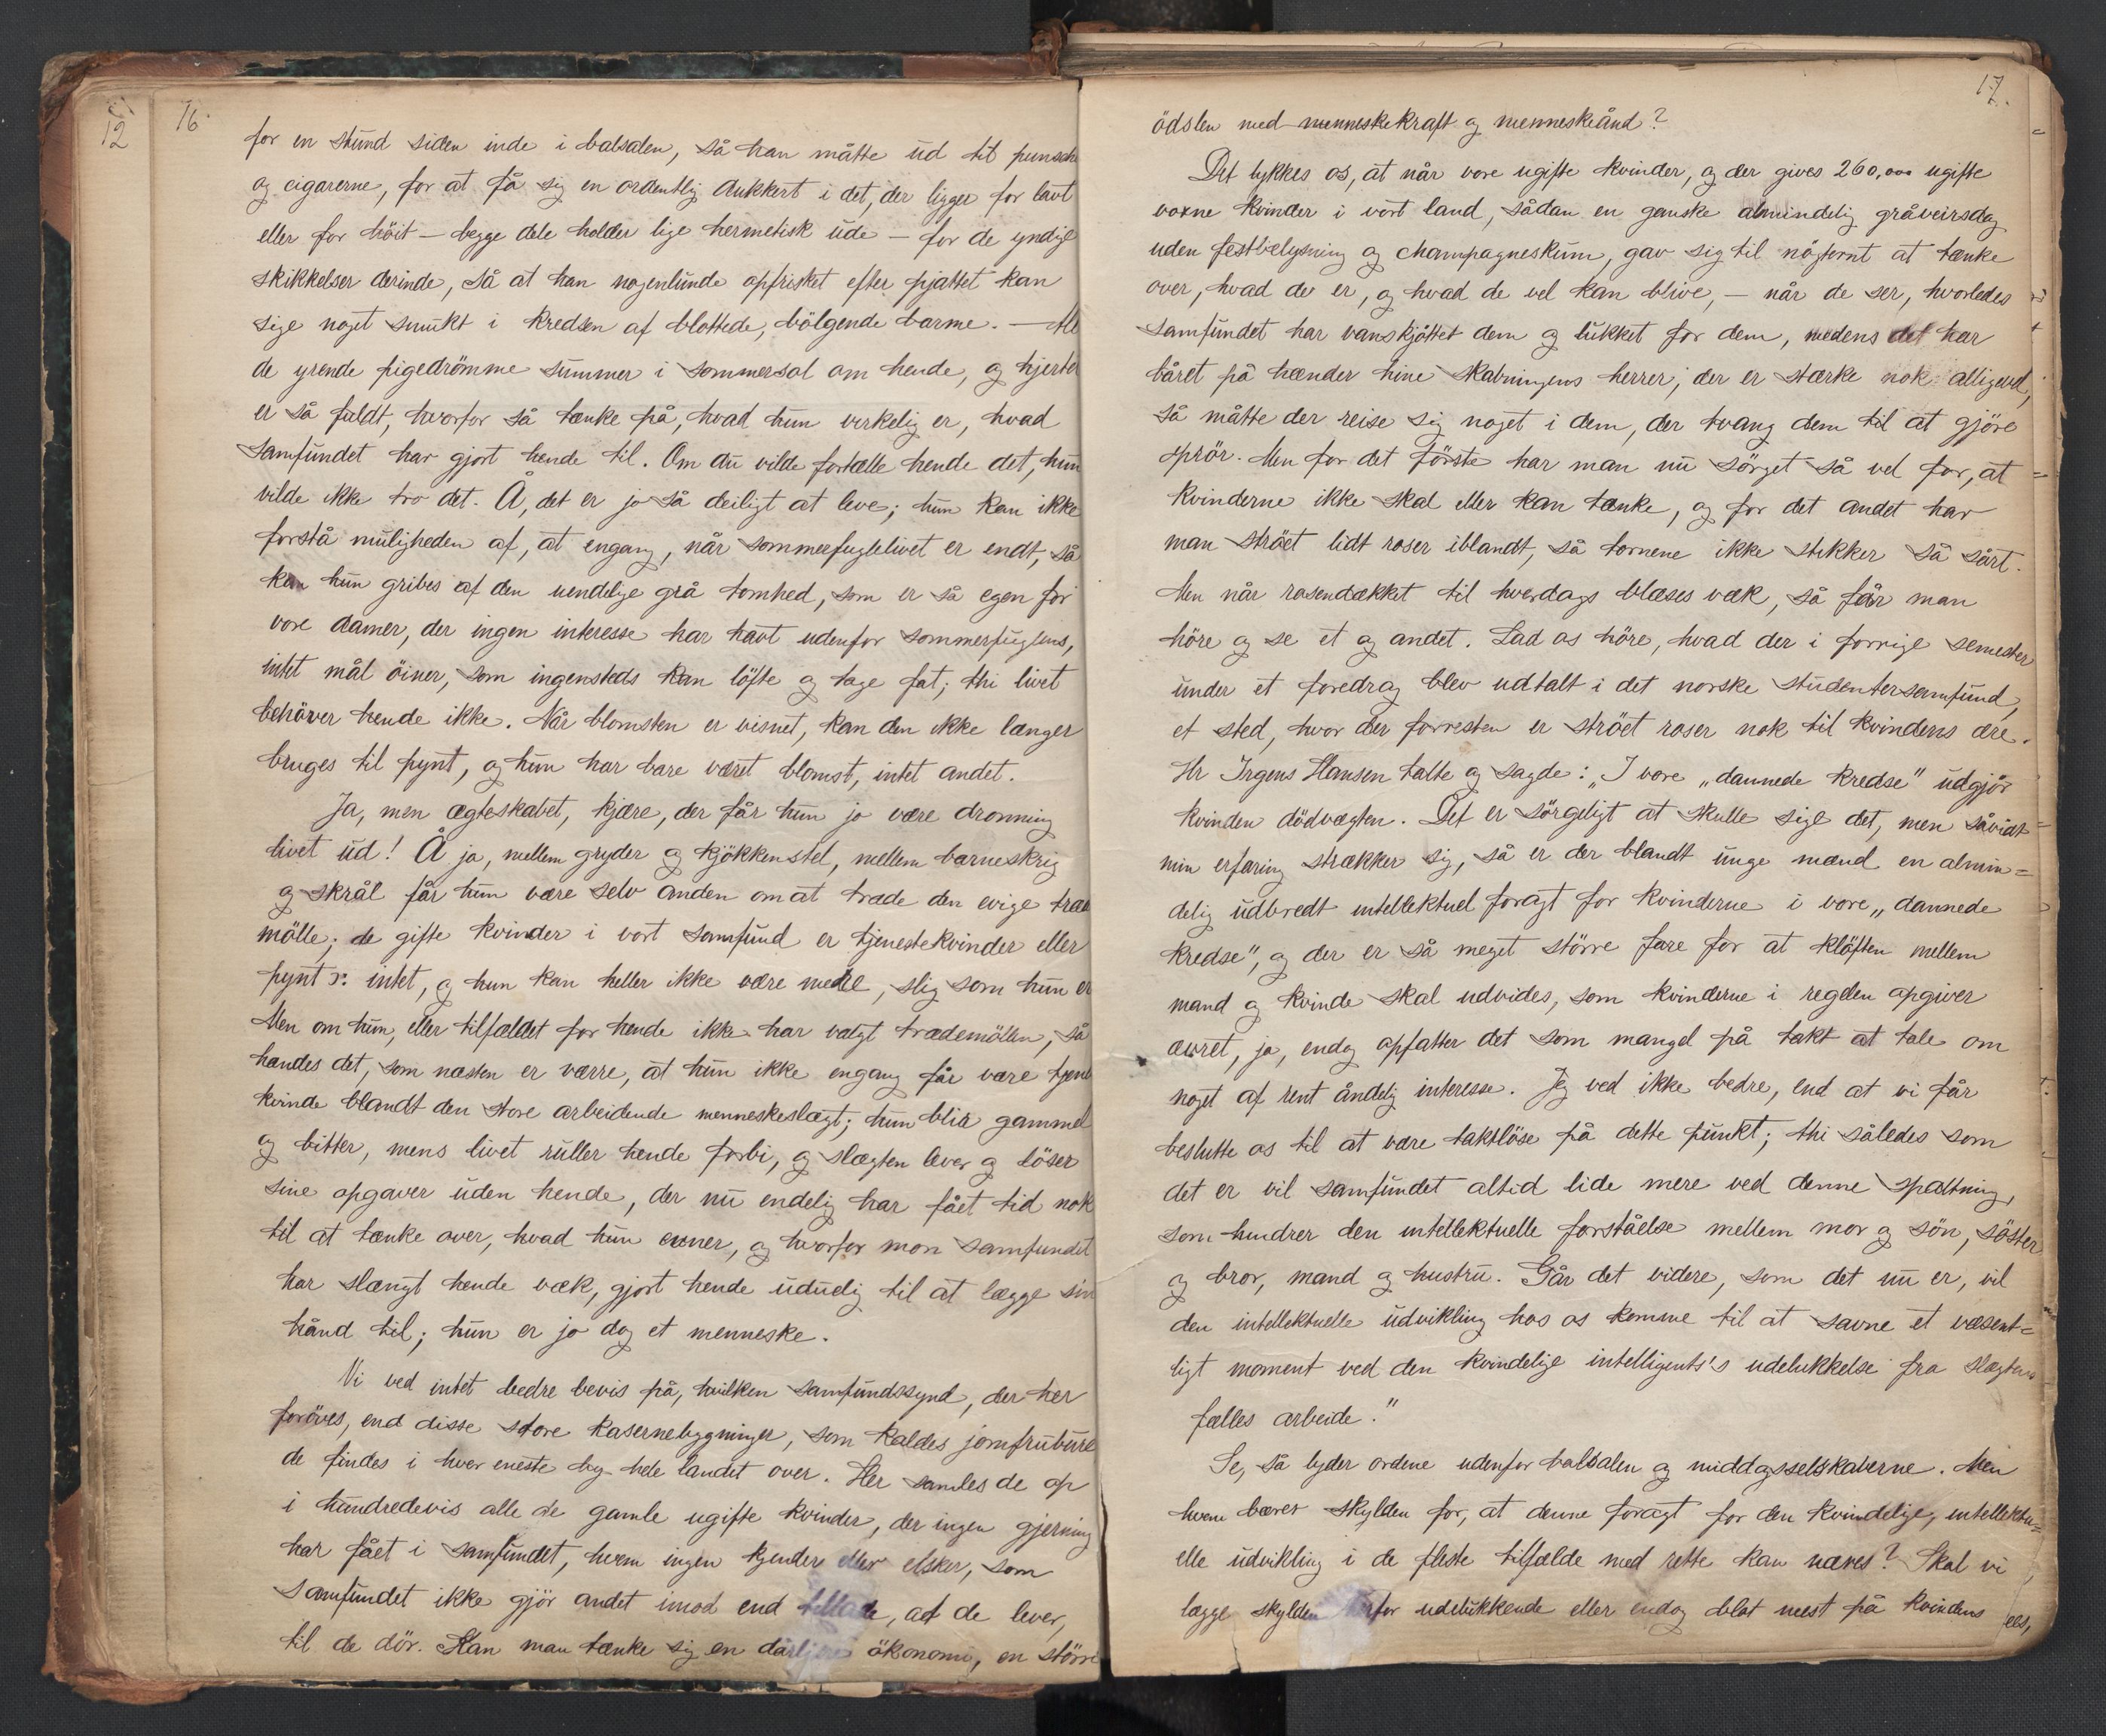 12
16.
for en stund siden inde i balsalen, så han måtte ud til punsch
og cigarerne, for at få sig en ordentlig dukkert i det, der ligger for lavt
eller for höit – begge dele holder lige hermetisk ude – for de yndige
skikkelser derinde, så at han nogenlunde opfrisket efter pjattet kan
sige noget smukt i kredsen af blottede, bölgende barme. – Al
de yrende pigedrömme summer i sommersol om hende, og hjertet
er så fuldt, hvorfor så tænke på, hvad hun virkelig er, hvad
samfundet har gjort hende til. Om du vilde fortælle hende det, hun
vilde ikke tro det. Å, det er jo så deiligt at leve; hun kan ikke
forstå muligheden af, at engang, når sommerfuglelivet er endt, så
kan hun gribes af den uendelige grå tomhed, som er så egen for
vore damer, der ingen interesse har havt udenfor sommerfuglens,
intet mål öiner, som ingensteds kan löfte og tage fat; thi livet
behöver hende ikke. Når blomsten er visnet, kan den ikke længer
bruges til pynt, og hun har bare været blomst, intet andet.
Ja, men ægteskabet, kjære, der får hun jo være dronning
livet ud! Å ja, mellem gryder og kjökkenstel, mellem barneskrig
og skrål får hun være selv anden om at træde den evige træde
mölle; de gifte kvinder i vort samfund er tjenestekvinder eller
pynt ɔ: intet, og hun kan heller ikke være mere, slig som hun er
Men om hun, eller tilfældet for hende ikke har valgt trædemöllen, så
hændes det, som næsten er værre, at hun ikke engang får være tjene
kvinde blandt den store arbeidende menneskeslægt; hun blir gammel
og bitter, mens livet ruller hende forbi, og slægten lever og löser
sine opgaver uden hende, der nu endelig har fået tid nok
til at tænke over, hvad hun evner, og hvorfor mon samfundet
har slængt hende væk, gjort hende ududelig til at lægge sin
hånd til; hun er jo dog et menneske.
Vi ved intet bedre bevis på, hvilken samfundssynd, der her
foröves, end disse store kasernebygninger, som kaldes jomfrubure
de findes i hver eneste by hele landet over. Her samles de op
i hundredevis alle de gamle ugifte kvinder, der ingen gjerning
har fået i samfundet, hvem ingen kjender eller elsker, som
samfundet ikke gjör andet imod end tillade, at de lever,
til de dör. Kan man tænke sig en dårligere ökonomi, en större
17.
ödslen med menneskekraft og menneskeånd?
Det tykkes os, at når vore ugifte kvinder, og der gives 260,000 ugifte
voxne kvinder i vort land, sådan en ganske almindelig gråveirsdag
uden festbelysning og champagneskum, gav sig til nögternt at tænke
over, hvad de er, og hvad de vel kan blive, – når de ser, hvorledes
samfundet har vanskjöttet dem og lukket for dem, medens det har
båret på hænder hine skabningens herrer, der er stærke nok alligevel,
så måtte der reise sig noget i dem, der tvang dem til at gjöre
oprör. Men for det förste har man nu sörget så vel for, at
kvinderne ikke skal eller kan tænke, og for det andet har
man ströet lidt roser iblandt, så tornene ikke stikker så sårt.
Men når rosendækket til hverdags blæses væk, så får man
höre og se et og andet. Lad os höre, hvad der i forrige semester
under et foredrag blev udtalt i det norske studentersamfund,
et sted, hvor der forresten er ströet roser nok til kvindens ære.
Hr Irgens Hansen talte og sagde: „I vore „dannede kredse" udgjör
kvinden dödvægten. Det er sörgeligt at skulle sige det, men såvidt
min erfaring strækker sig, så er der blandt unge mænd en almin=
delig udbredt intellektuel foragt for kvinderne i vore „dannede
kredse", og der er så meget större fare for at klöften mellem
mand og kvinde skal udvides, som kvinderne i regelen opgiver
ævret, ja, endog opfatter det som mangel på takt at tale om
noget af rent åndelig interesse. Jeg ved ikke bedre, end at vi får
beslutte os til at være taktlöse på dette punkt; thi således som
det er vil samfundet altid lide mere ved denne spaltning,
som hindrer den intellektuelle forståelse mellem mor og sön, söster
og bror, mand og hustru. Går det videre, som det nu er, vil
den intellektuelle udvikling hos os komme til at savne et væsent=
ligt moment ved den kvindelige intelligents's udelukkelse fra slægtens
fælles arbeide."
Se, så lyder ordene udenfor balsalen og middagsselskaberne. Men
hvem bærer skylden for, at denne foragt for den kvindelige, intellektu=
elle udvikling i de fleste tilfælde med rette kan næres? Skal vi
lægge skylden herfor udelukkende eller endog blot mest på kvindens